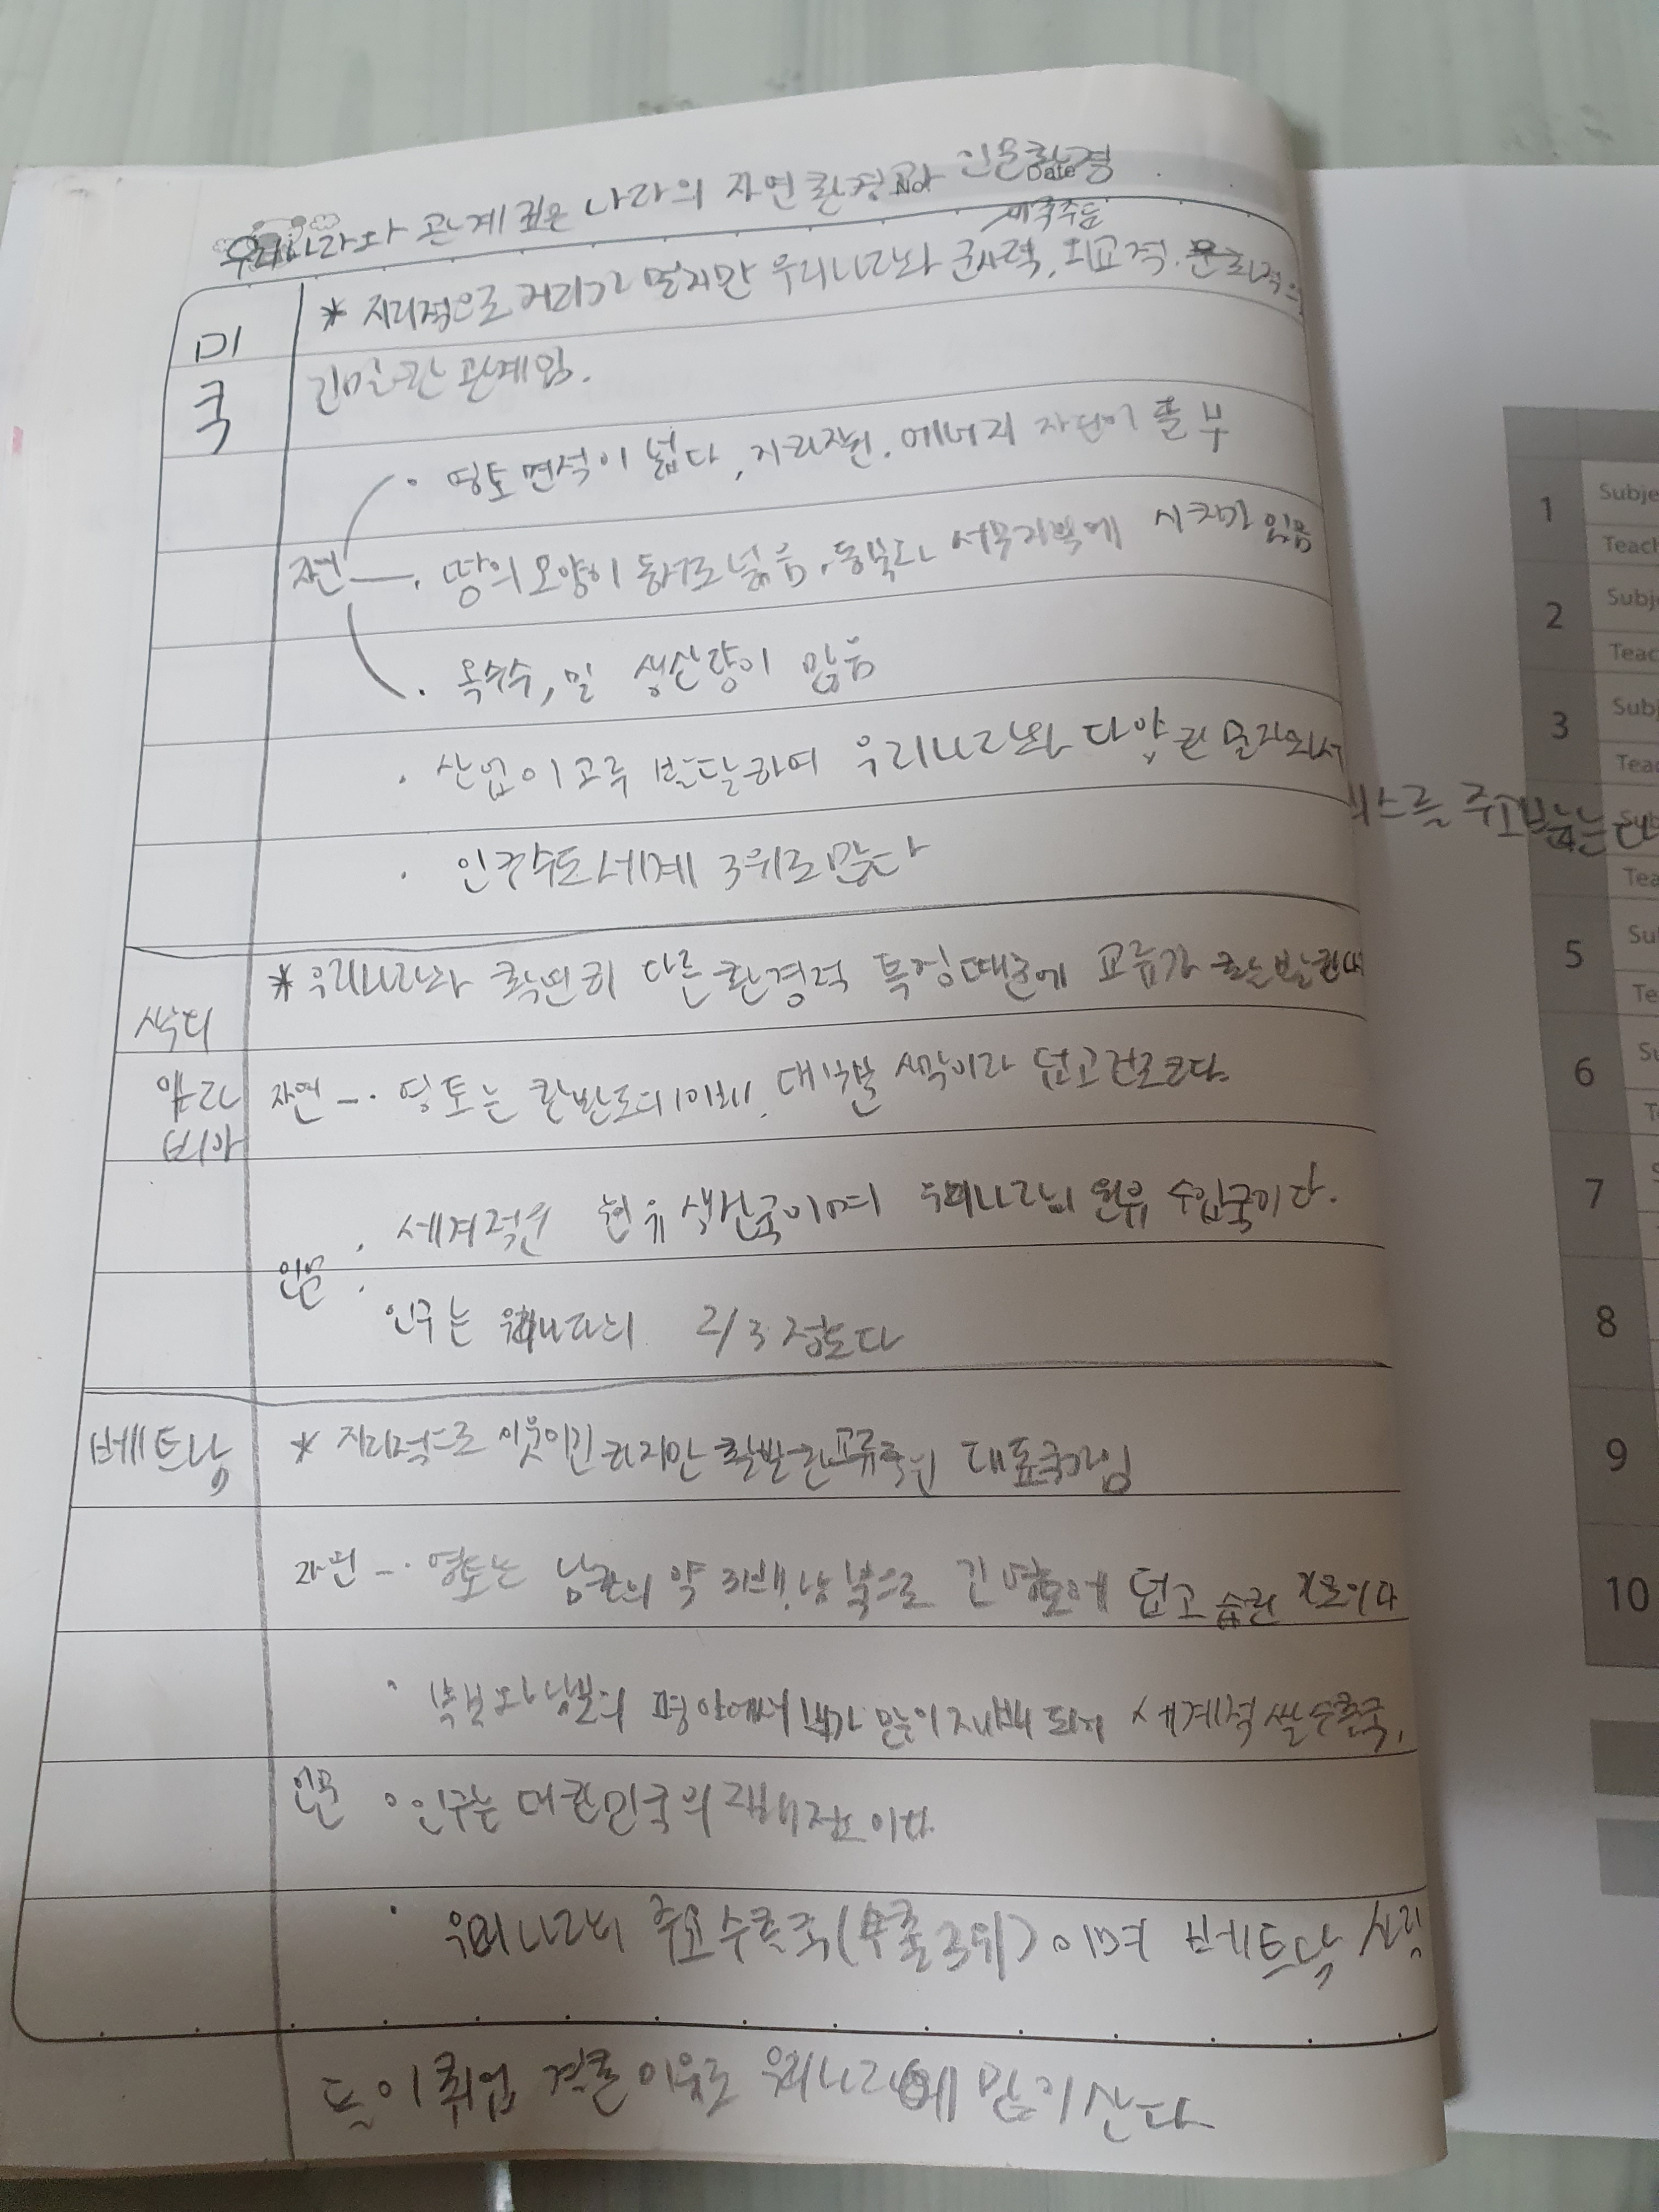 우리나라와 관계 깊은 나라의 자연환경과 인문환경
No.
Date
미국
* 지리적으로 거리가 멀지만 우리나라와 군사적, 외교적,
긴밀한 관계임.
· 영토면적이 넓다, 에너지 자원이 풍부
자연 · 땅의 모양이 동서로 넓음, 서부지역에
· 옥수수, 밀 생산량이 많음
· 산업이 고루 발달하여 우리나라와 다양한 물자와 서
비스를 주고받는
· 인구수도 세계 3위로 많다
사우디
아라비아
* 우리나라와 확연히 다른 환경적 특징때문에 교류가
자연 - · 영토는 한반도의 대부분 사막이라 덥고 건조하다.
인문 · 세계적인 원유 생산국이며 우리나라의 원유 수입국이다.
· 인구는 우리나라의 2/3 정도다
베트남
* 지리적으로 활발한 교류국의 대표국가임
자연 - · 영토는 남한의 약 3배, 남북으로 긴 영토에 덥고 습한 기후이다
· 북부와 남부의 평야에서 벼가 많이 재배되어 세계적 쌀수출국.
인문 · 인구는 대한민국의 2배정도이다.
· 우리나라의 주요수출국(수출3위)이며 베트남 사람
들이 취업 결혼 이유로 우리나라에 많이 산다
1
2
3
5
6
7
8
9
10